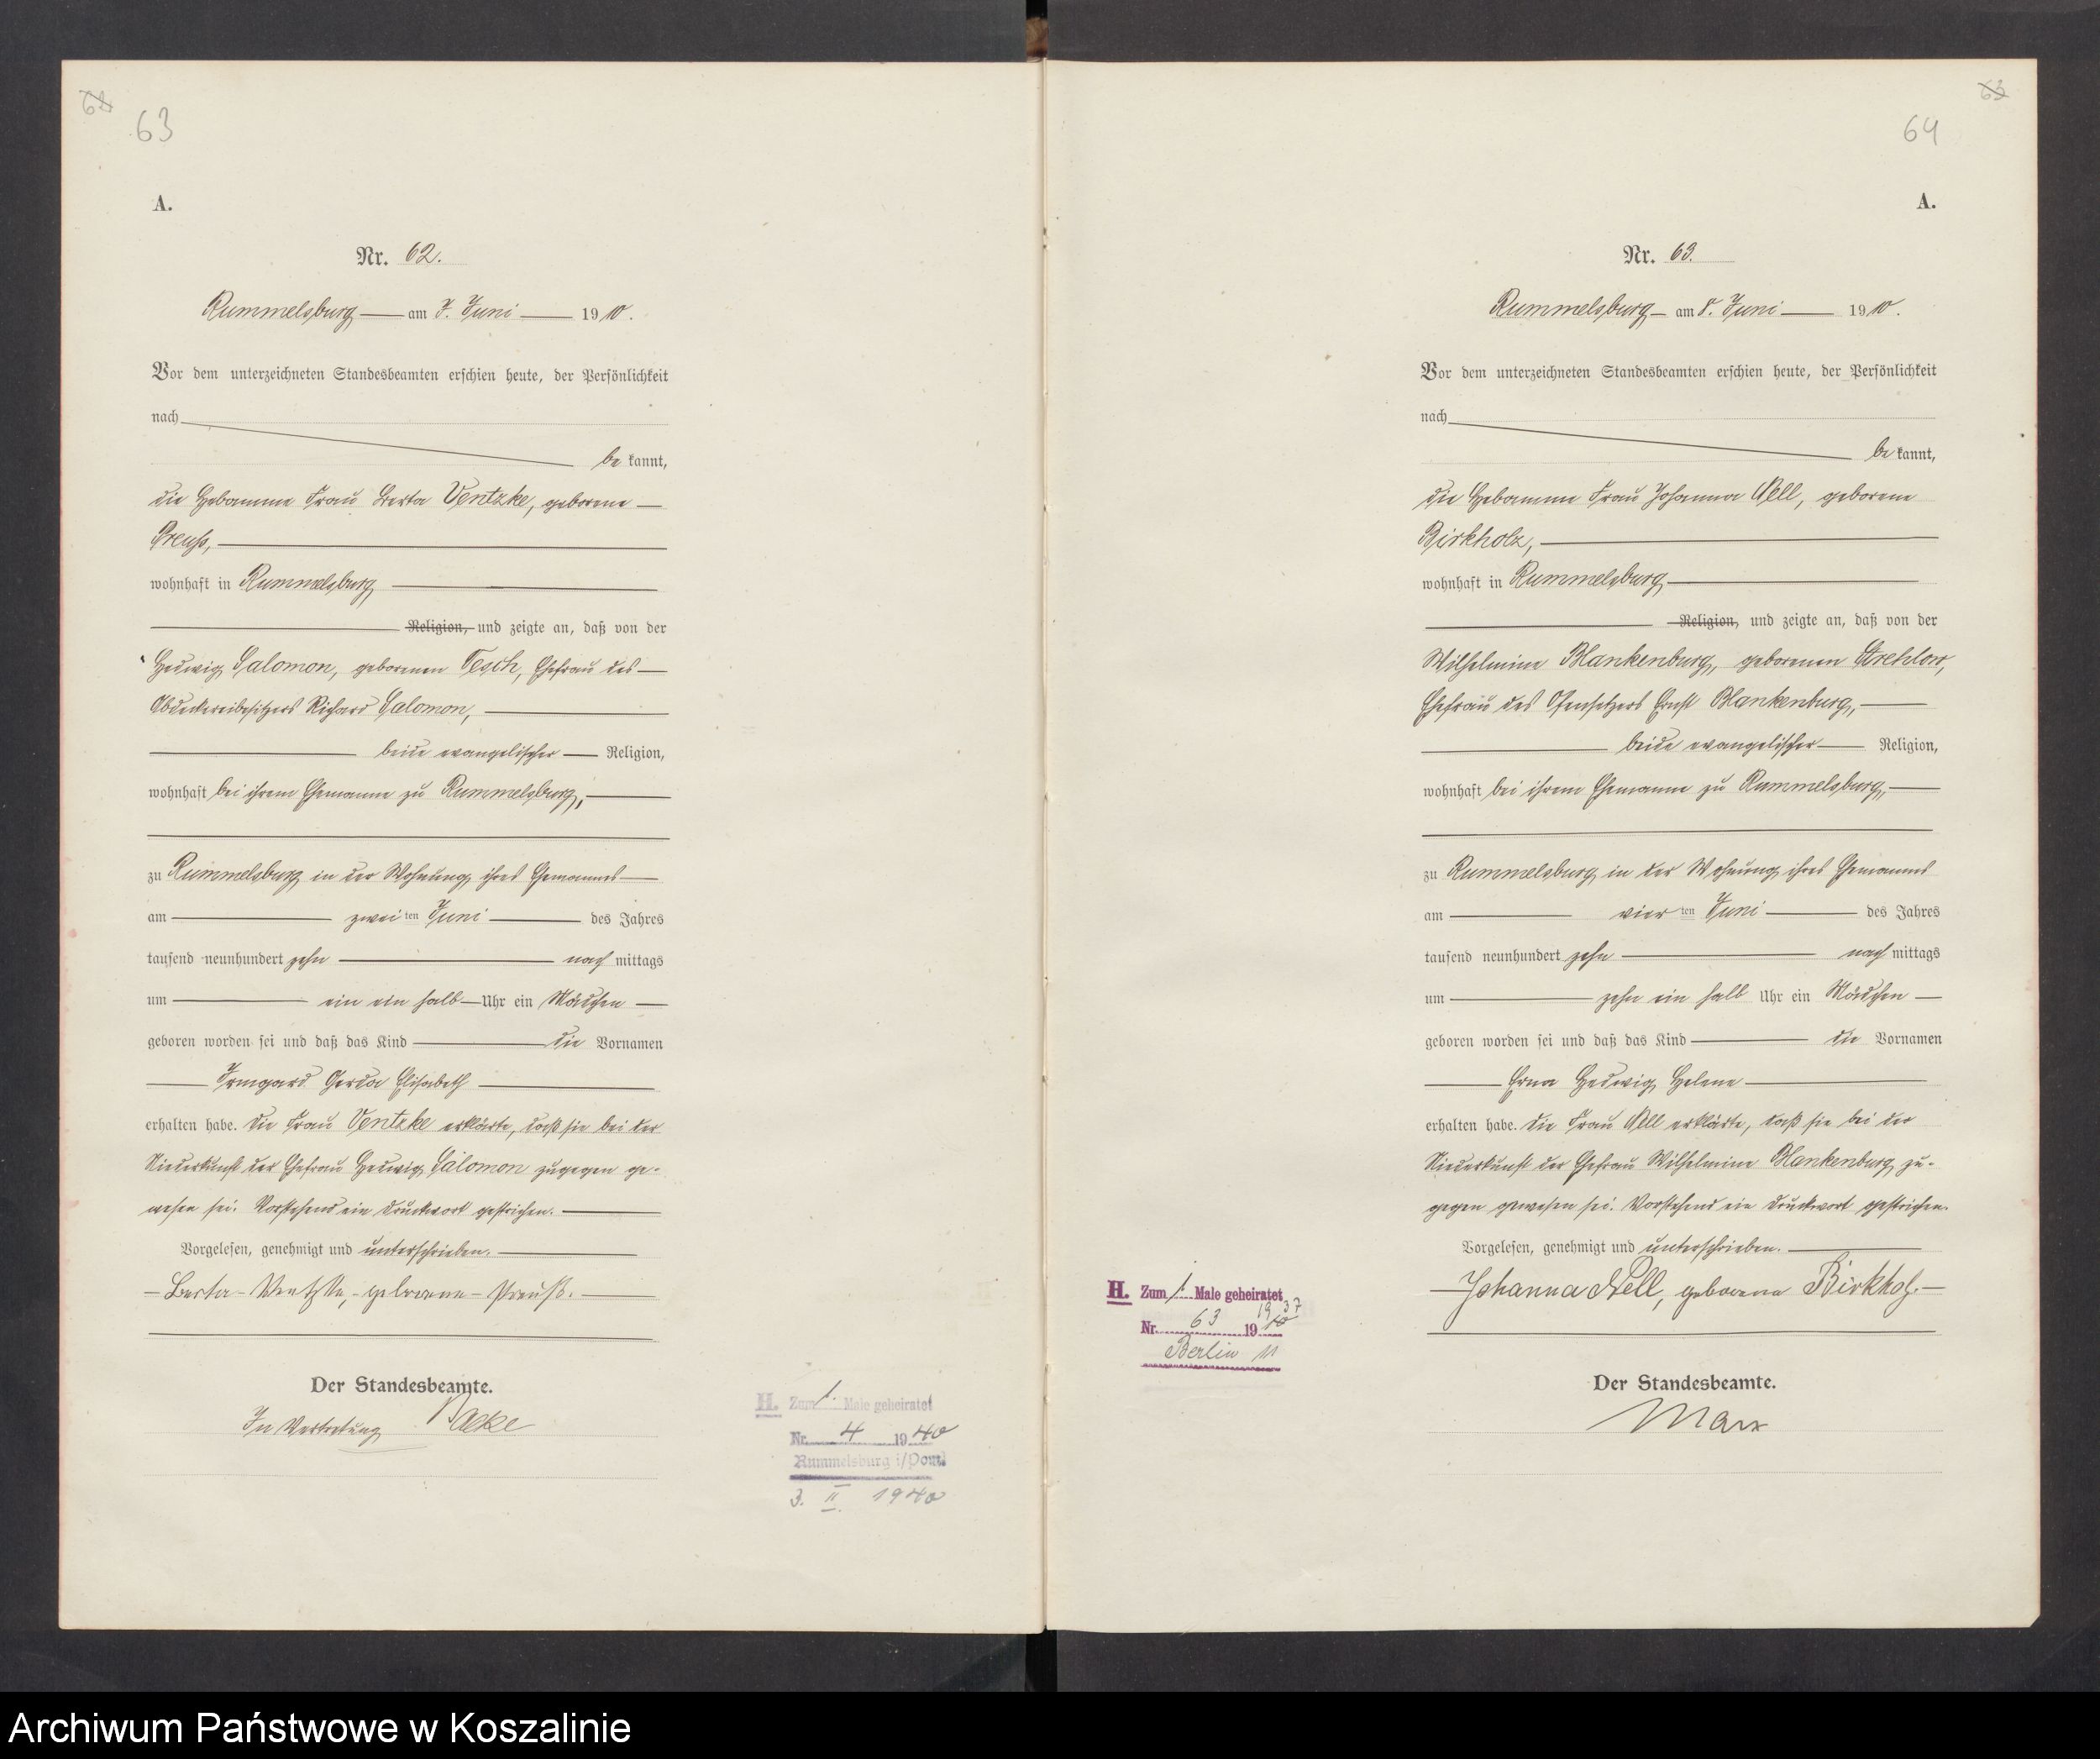 62
63
A.
Nr. 62.
Rummelsburg am 7. Juni 1910.
Vor dem unterzeichneten Standesbeamten erschien heute, der Persönlichkeit
nach
bekannt,
die Hebamme Frau Berta Ventzke, geborene
Preuß,
wohnhaft in Rummelsburg
Religion, und zeigte an, daß von der
Hedwig Salomon, geborenen Tesch, Ehefrau des
Abdeckereibesitzers Richard Salomon,
beide evangelischer Religion,
wohnhaft bei ihrem Ehemanne zu Rummelsburg,
zu Rummelsburg in der Wohnung ihres Ehemannes
am zweiten Juni des Jahres
tausend neunhundert zehn nachmittags
um ein ein halb Uhr ein Mädchen
geboren worden sei und daß das Kind die Vornamen
Irmgard Gerda Elisabeth
erhalten habe. Die Frau Ventzke erklärte, daß sie bei der
Niederkunft der Ehefrau Hedwig Salomon zugegen ge-
wesen sei. Vorstehend ein Druckwort gestrichen.
Vorgelesen, genehmigt und unterschrieben.
Berta Ventzke, geborene Preuß.
Der Standesbeamte.
In Vertretung
H. Zum 1. Male geheiratet
Nr. 4 1940
Rummelsburg i/Pom
3. II. 1940
63
64
A.
Nr. 63.
Rummelsburg am 8. Juni 1910.
Vor dem unterzeichneten Standesbeamten erschien heute, der Persönlichkeit
nach
bekannt,
die Hebamme Frau Johanna Nell, geborene
Birkholz,
wohnhaft in Rummelsburg
Religion, und zeigte an, daß von der
Wilhelmine Blankenburg, geborenen Strehlow,
Ehefrau des Ofensetzers Ernst Blankenburg,
beide evangelischer Religion,
wohnhaft bei ihrem Ehemanne zu Rummelsburg,
zu Rummelsburg in der Wohnung ihres Ehemannes
am vierten Juni des Jahres
tausend neunhundert zehn nachmittags
um zehn ein halb Uhr ein Mädchen
geboren worden sei und daß das Kind die Vornamen
Erna Hedwig Helene
erhalten habe. Die Frau Nell erklärte, daß sie bei der
Niederkunft der Ehefrau Wilhelmine Blankenburg zu-
gegen gewesen sei. Vorstehend ein Druckwort gestrichen.
Vorgelesen, genehmigt und unterschrieben.
Johanna Nell, geborene Birkholz.
Der Standesbeamte.
Marx
H. Zum 1. Male geheiratet
1937
Nr. 63 19
Berlin
Archiwum Państwowe w Koszalinie